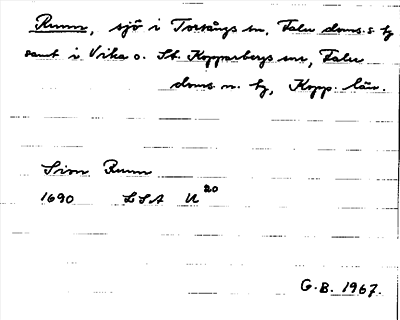 Runn, sjö i Torsångs sn, Falu doms. s. tg
samt i Vika o. St. Kopparbergs snr, Falu
doms. n. tg, Kopp. län.
Sion Runn
1690 LSA U 20
G.B. 1967.